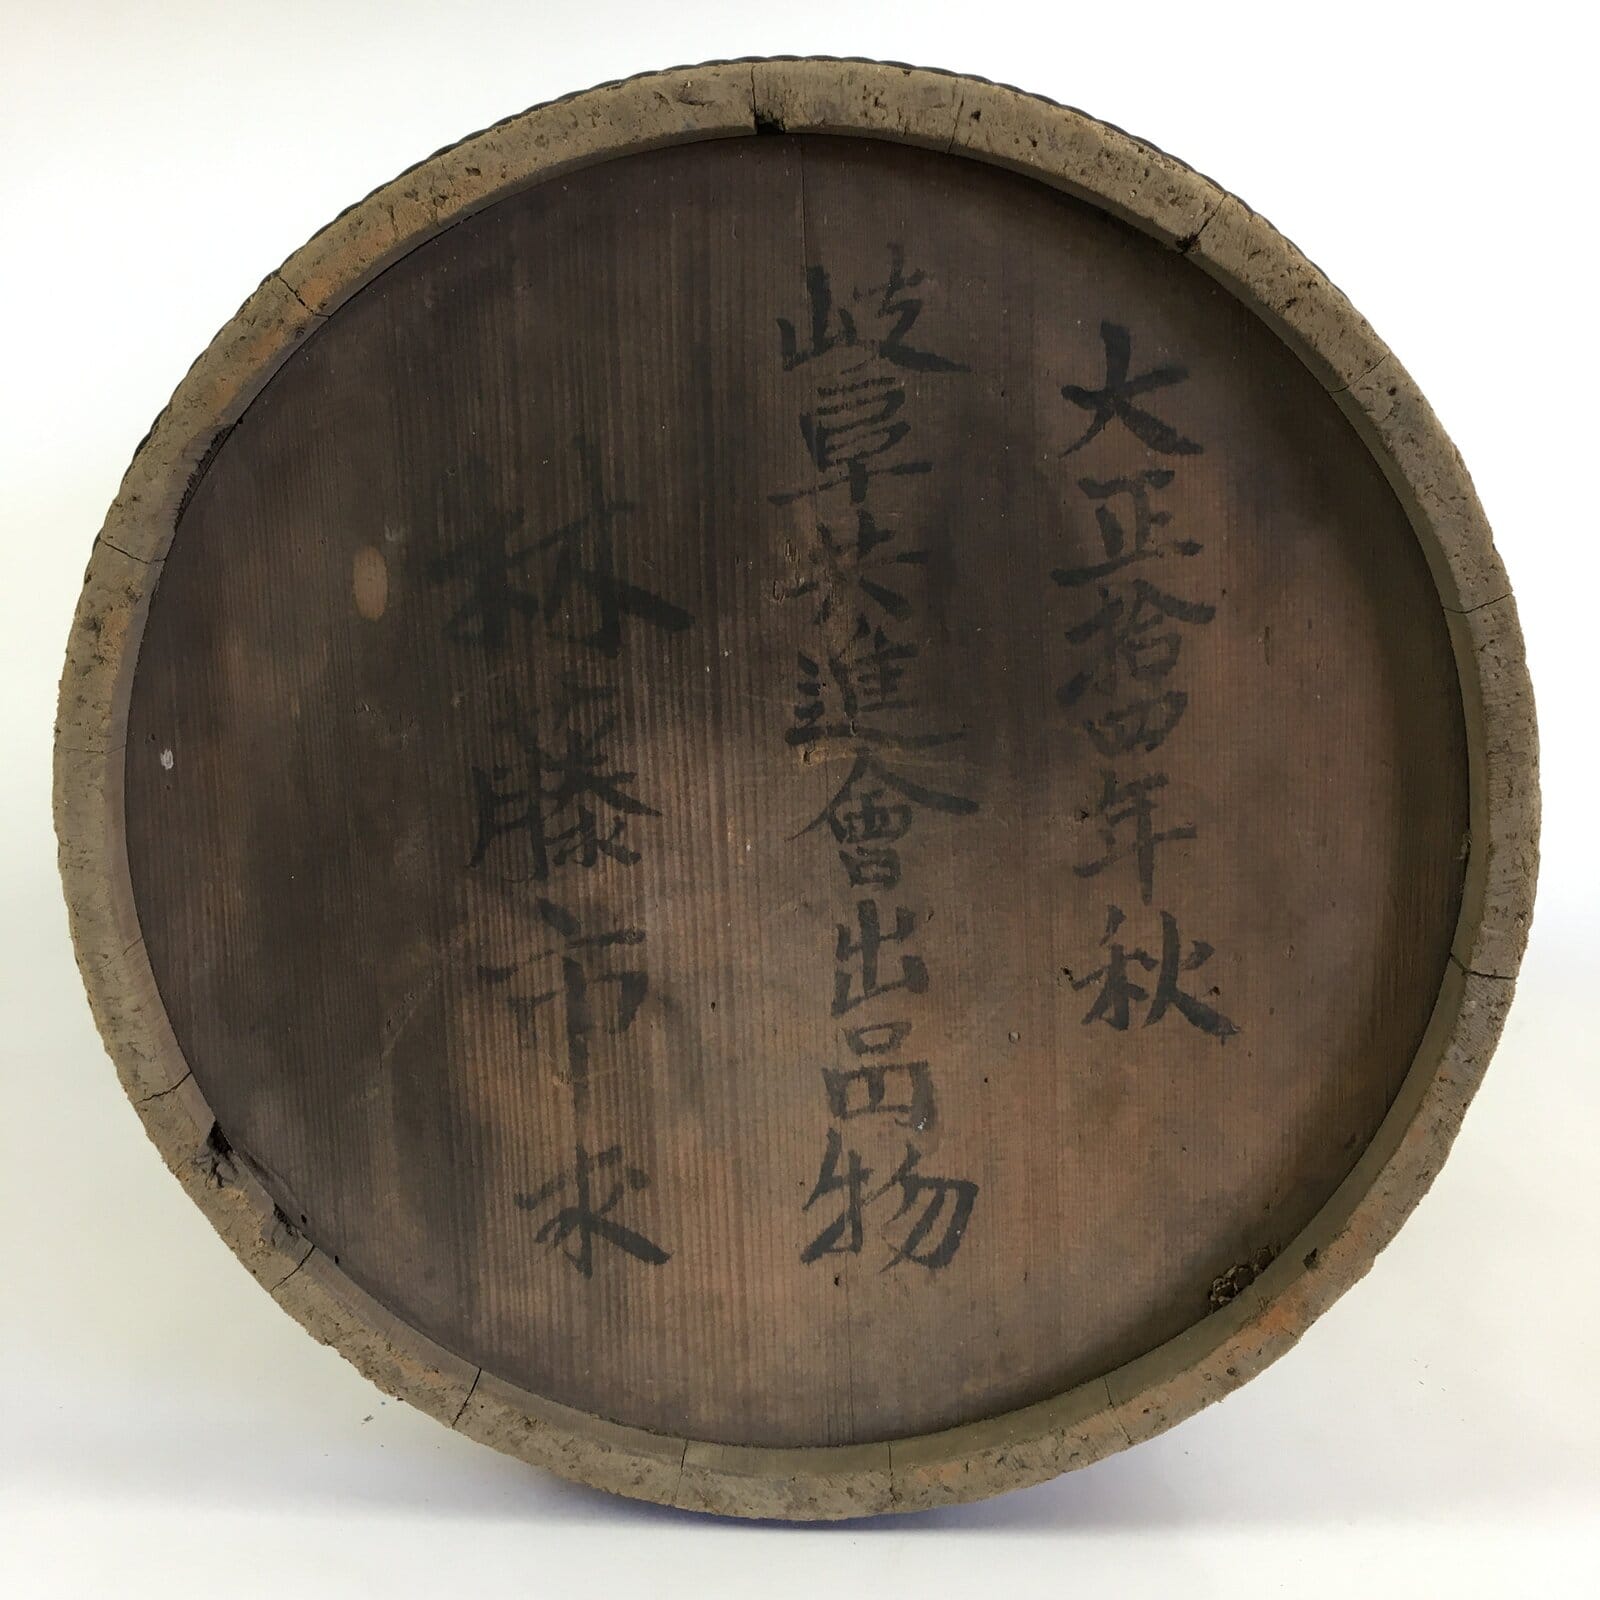 大正拾四年秋
岐阜共進會出品物
林藤市来